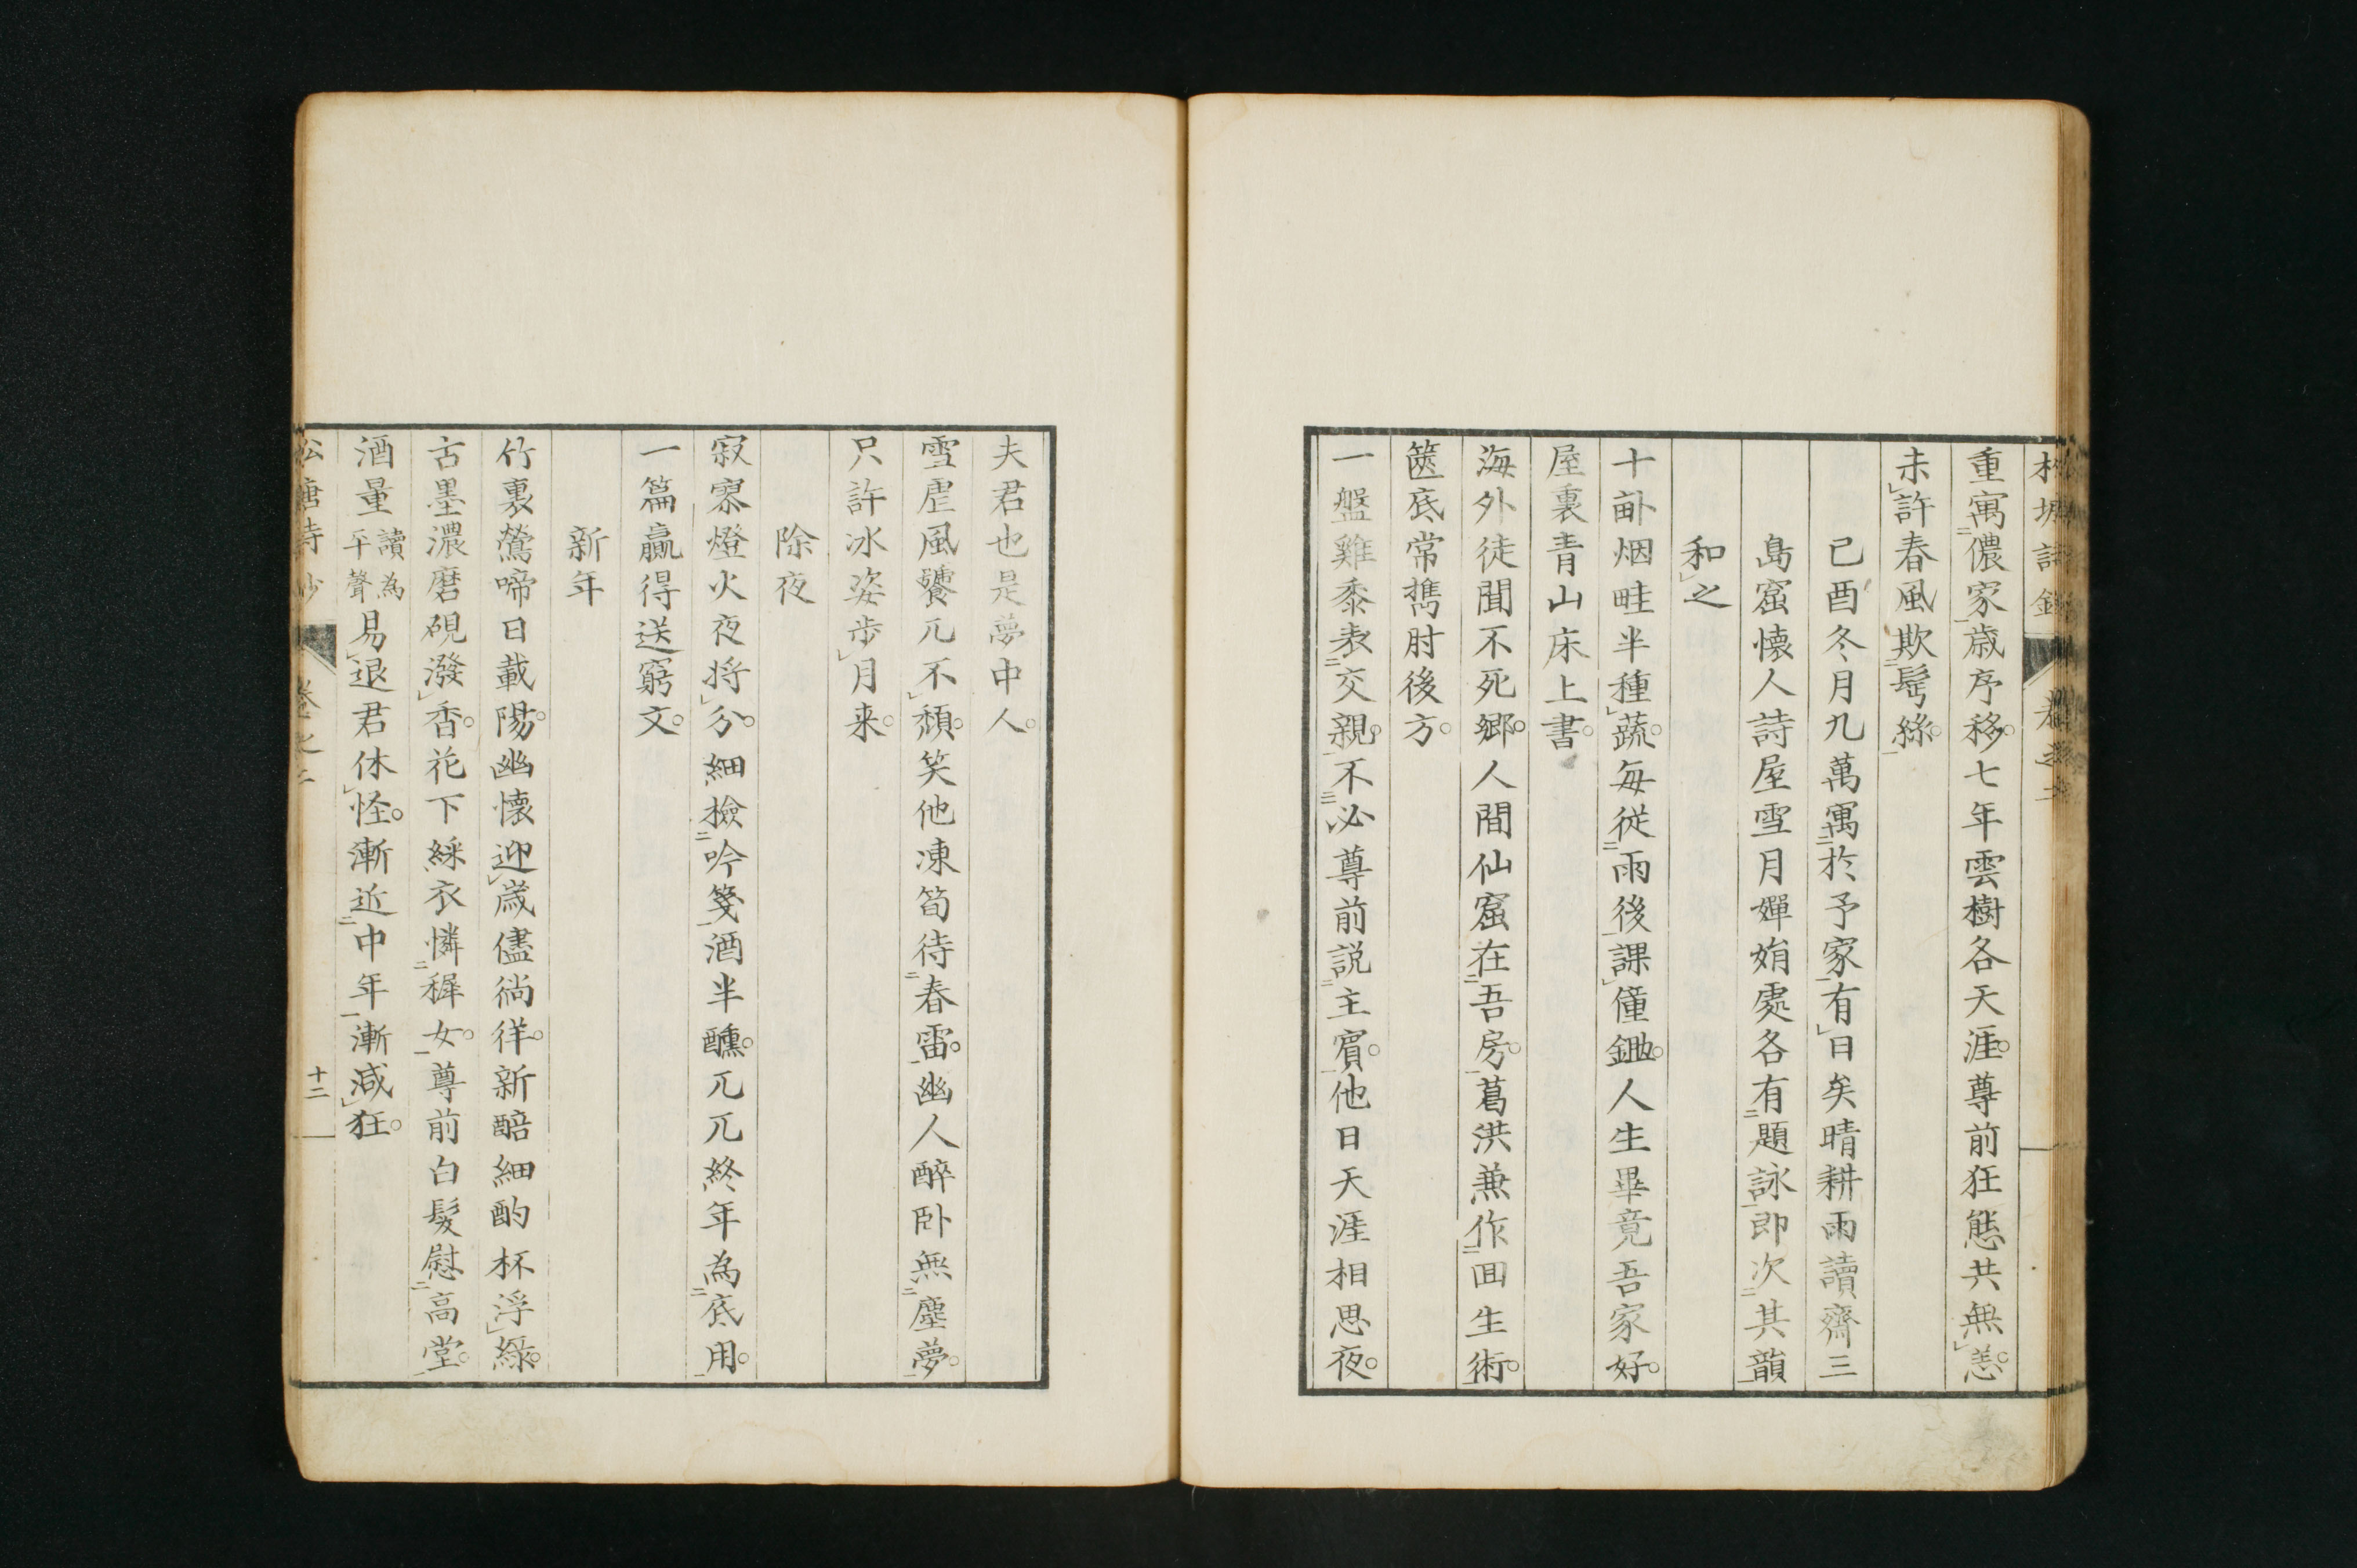 重寓儂家歲序移七年雲樹各天涯尊前狂態共無恙
未許春風欺鬢絲
己酉冬月九萬寓於予家有日矣晴耕雨讀齋三
島窟懷人詩屋雪月嬋娟處各有題詠即次其韻
和之
十畝烟畦半種蔬每從雨後課僮鋤人生畢竟吾家好
屋裏青山床上書
海外徒聞不死鄉人間仙窟在吾房葛洪兼作回生術
篋底常携肘後方
一盤雞黍表交親不必尊前説主賓他日天涯相思夜
夫君也是夢中人
雪虐風饕兀不頹笑他凍筍待春雷幽人醉卧無塵夢
只許冰姿步月来
除夜
寂寥燈火夜将分細檢吟箋酒半醺兀兀終年為底用
一篇贏得送窮文
新年
竹裏鶯啼日載陽幽懷迎歲儘徜徉新醅細酌杯浮綠
古墨濃磨硯潑香花下綵衣憐穉女尊前白髮慰高堂
酒量讀為平聲易退君休怪漸近中年漸減狂
詩鈔 卷之二 十二